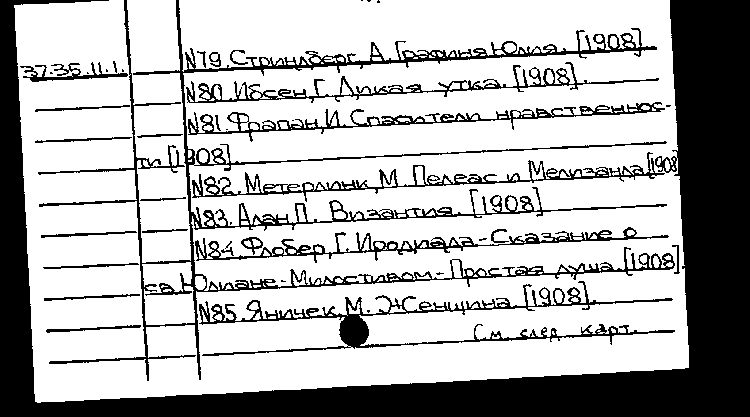 37.35.11.1. N79. Стриндберг, А. Графиня Юлия. [1908]
N80. Ибсен, Г. Дикая утка. [1908].
N81. Фрапан, И. Спасители нравственнос-
ти [1908].
N82. Метерлинк, М. Пелеас и Мелизанда [1908]
N83. Адан, П. Византия. [1908]
N84. Флобер, Г. Иродиада - Сказание о
св. Юлиане - Милостивом - Простая душа. [1908].
N85. Яничек, М. Женщина. [1908].
См. след. карт.